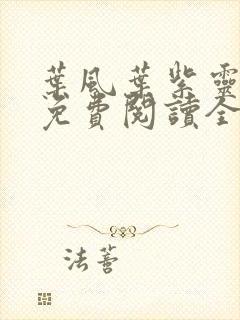 葉風葉紫靈
免費閱讀全
法蓍